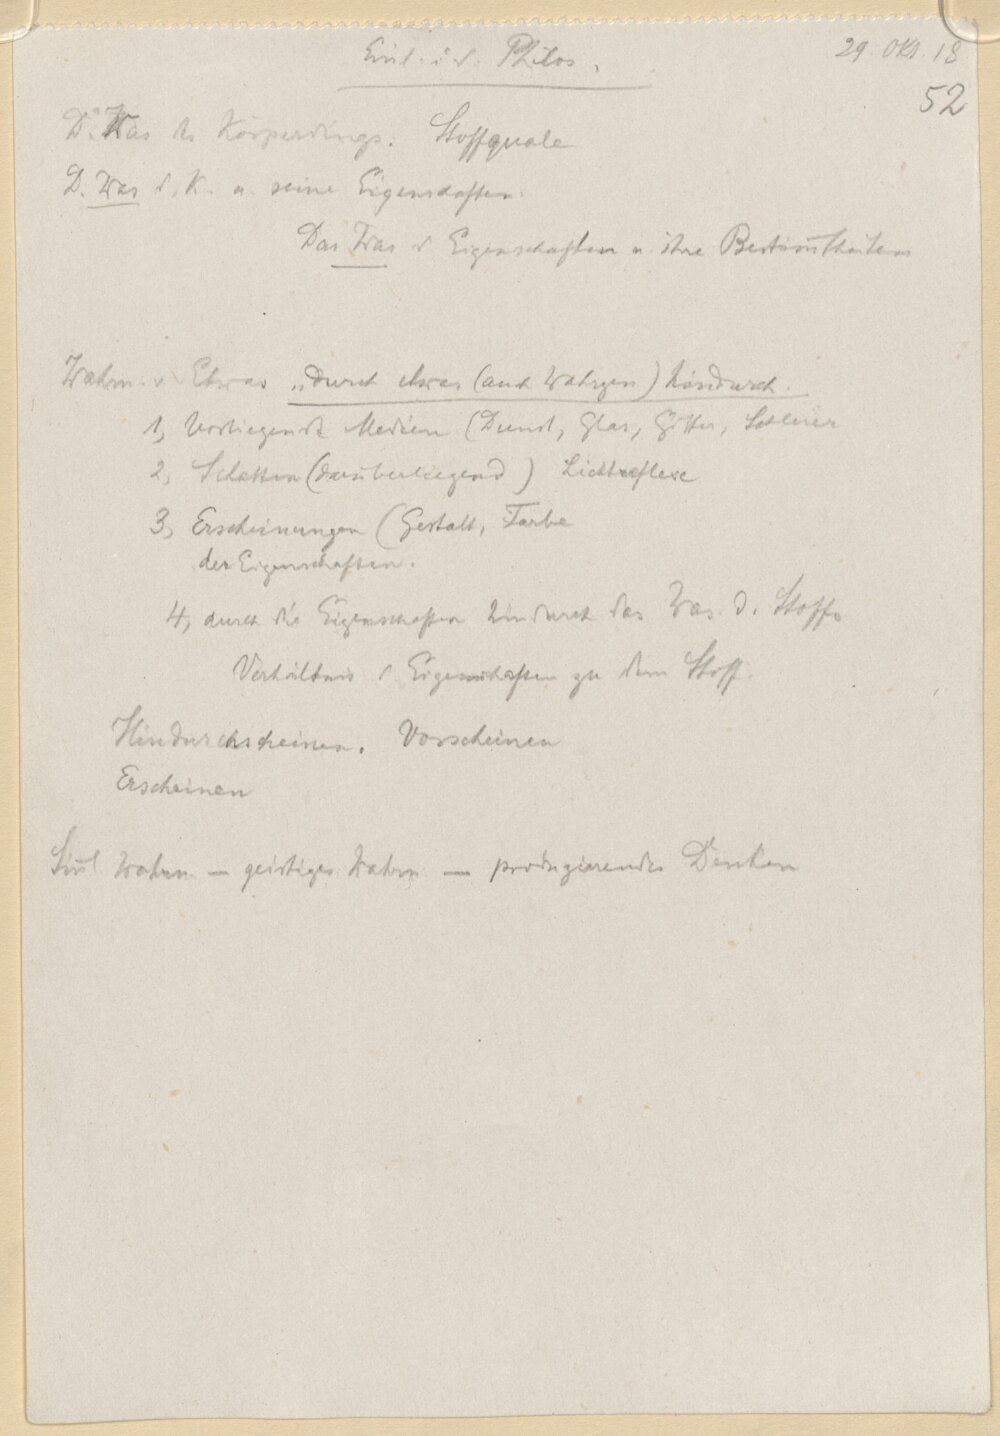 Einl. i. d. Philos.
29. Okt. 18
52
D. Was des Körperdings: Stoffquale
D. Was d. K. u. seine Eigenschaften.
Das Was d Eigenschaften u. ihre Bestimmtheiten
Wahrn. v Etwas „durch etwas (auch Wahrgen) hindurch.
1, Vorliegende Medien (Dunst, Glas, Gitter, Schleier
2, Schatten (darüberliegend) Lichtreflexe
3, Erscheinungen (Gestalt, Farbe
der Eigenschaften.
4, durch die Eigenschaften hindurch das Was d. Stoffs
Verhältnis d Eigenschaften zu dem Stoff.
Hindurchscheinen. Vorscheinen
Erscheinen
Sinnl Wahrn — geistiges Wahrn — produzierendes Denken